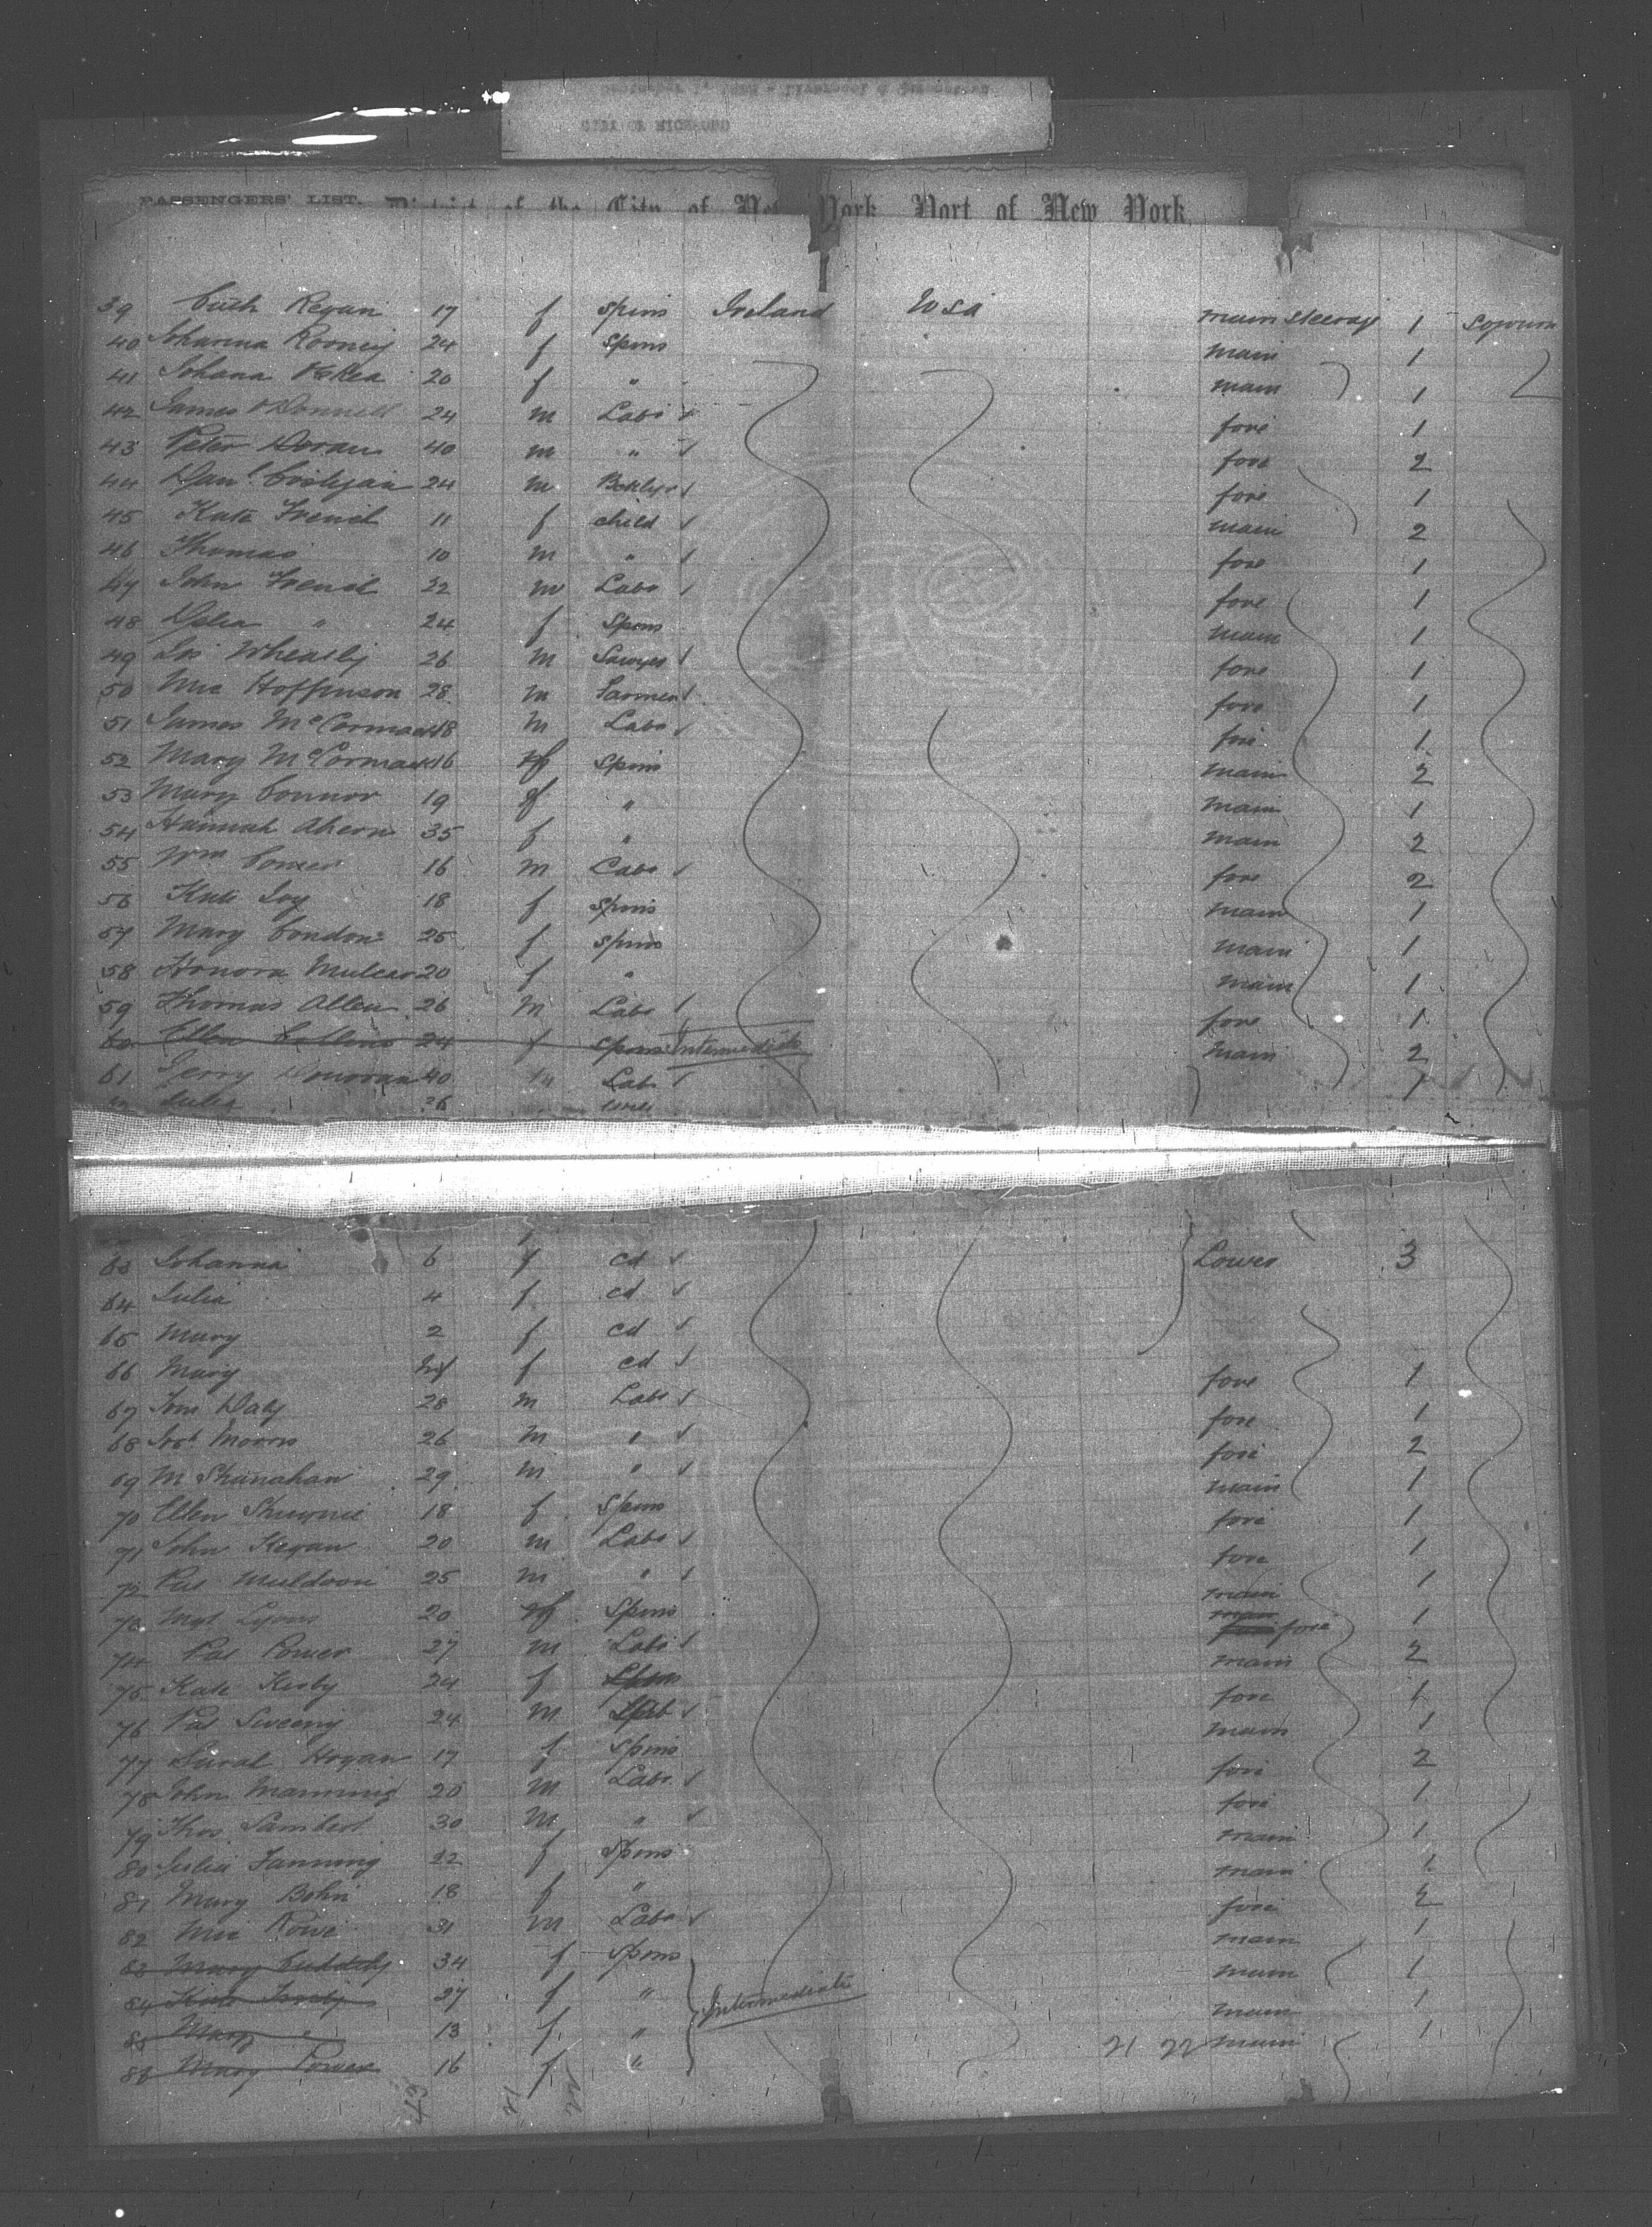 CITY OF RICHMOND
PASSENGERS' LIST. District of the City of New York Port of New York
39 Cath Regan 17 f Spins Ireland USA main steerage 1
40 Johanna Rooney 24 f Spins main 1
41 Johana 20 f " main 1
42 James O'Donnell 24 m Labr fore 1
43 Peter Doran 40 m " fore 2
44 Danl. Costigan 24 m fore 1
45 Kate French 11 f child main 2
46 Thomas 10 m " fore 1
47 John French 22 m Labr fore 1
48 Delia " 24 f Spins main 1
49 Jos Wheatly 26 m Sawyer fore 1
50 Mic 28 m Farmer fore 1
51 James McCormack 18 m Labr fore 1
52 Mary McCormack 16 f Spins main 2
53 Mary Connor 19 f " main 1
54 Hannah Ahern 35 f " main 2
55 Wm 16 m Labr fore 2
56 Kate Joy 18 f Spins main 1
57 Mary Condon 25 f Spins main 1
58 Honora 20 f " main 1
59 Thomas Allen 26 m Labr fore 1
60 Ellen Collins 24 f Spins Intermediate main 2
61 Jerry Donovan 40 m Labr 1
Julia 26
63 Johanna 6 f cd Lower 3
64 Julia 4 f cd
65 Mary 2 f cd
66 Mary f cd fore 1
67 Tom Daly 28 m Labr fore 1
68 Morris 26 m " fore 2
69 M Shanahan 29 m " main 1
70 Ellen 18 f Spins fore 1
71 John Kegan 20 m Labr fore 1
72 Pat Muldoon 25 m " main 1
73 Mgt Lyons 20 f Spins fore 1
74 Pat Power 27 m Labr main 2
75 Kate Kirby 24 f Spin fore 1
76 Pat Sweeny 24 m Lab main 1
77 Sarah Hogan 17 f Spins fore 2
78 John Manning 20 m Labr fore 1
79 Thos Lambert 30 m " main 1
80 Julia Fanning 22 f Spins main 1
81 Mary 18 f " fore 2
82 Mic Rowe 31 m Labr main 1
83 Mary 34 f Spins main 1
84 Kate 27 f " Intermediate main 1
85 Mary " 13 f " 21 22 main 1
86 Mary Power 16 f "